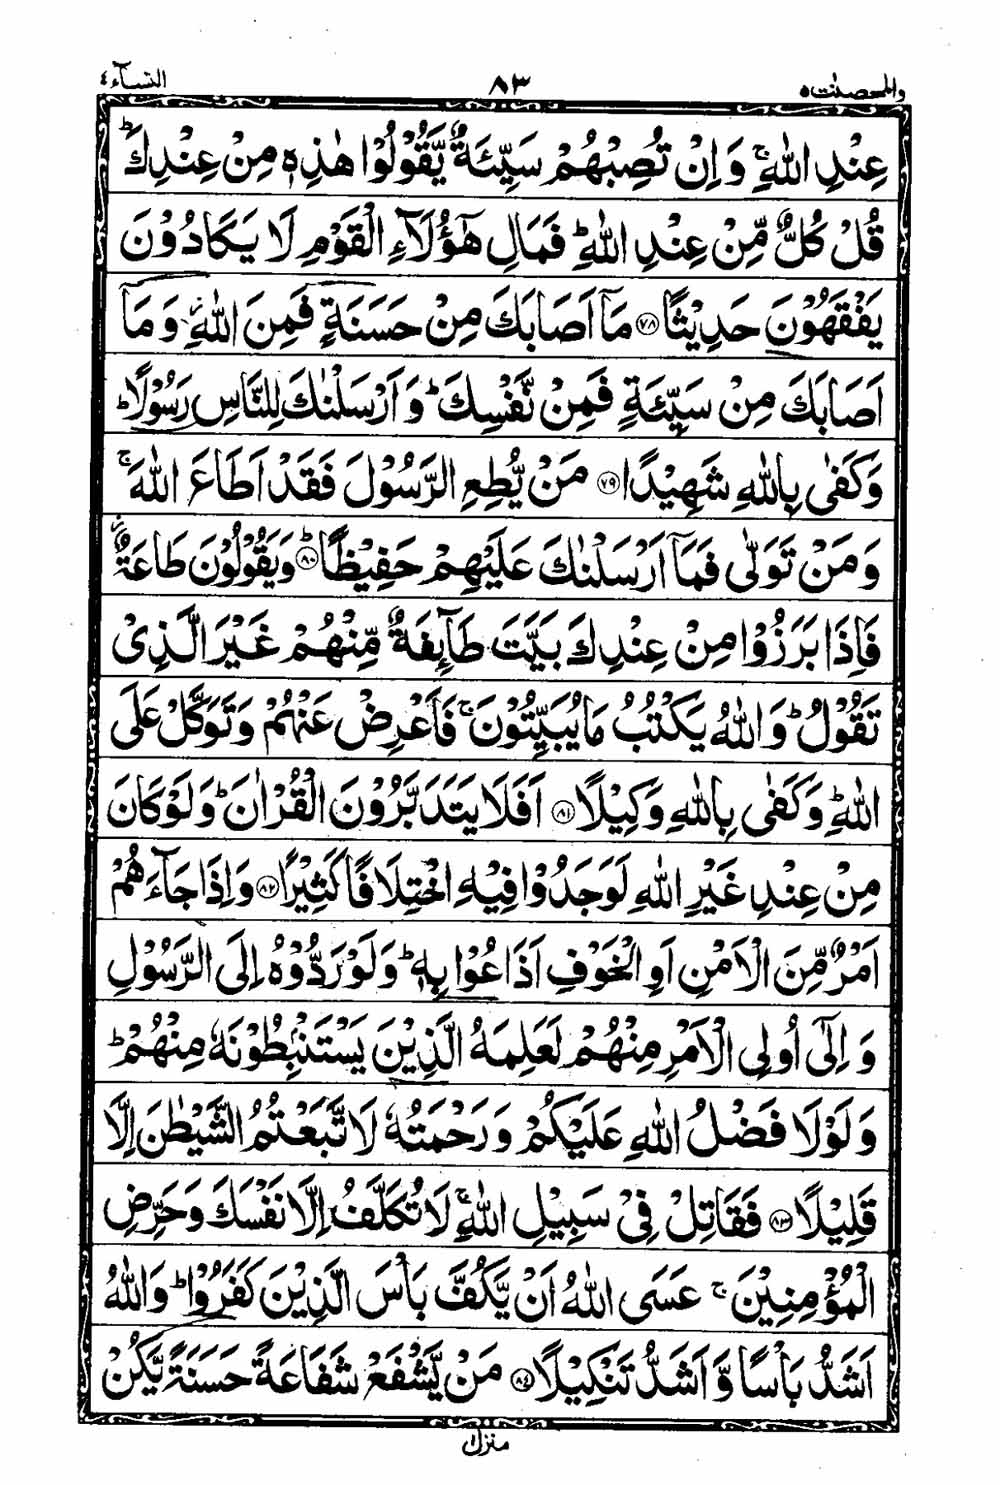 والمحصنت ٥ ٨٣ النسآء ٤
عِنْدِ اللّٰهِ ۚ وَ اِنْ تُصِبْهُمْ سَيِّئَةٌ يَّقُوْلُوْا هٰذِهٖ مِنْ عِنْدِكَ ؕ
قُلْ كُلٌّ مِّنْ عِنْدِ اللّٰهِ ؕ فَمَالِ هٰۤؤُلَآءِ الْقَوْمِ لَا يَكَادُوْنَ
يَفْقَهُوْنَ حَدِيْثًا ﴿٧٨﴾ مَاۤ اَصَابَكَ مِنْ حَسَنَةٍ فَمِنَ اللّٰهِ ؗ وَ مَاۤ
اَصَابَكَ مِنْ سَيِّئَةٍ فَمِنْ نَّفْسِكَ ؕ وَ اَرْسَلْنٰكَ لِلنَّاسِ رَسُوْلًا ؕ
وَ كَفٰى بِاللّٰهِ شَهِيْدًا ﴿٧٩﴾ مَنْ يُّطِعِ الرَّسُوْلَ فَقَدْ اَطَاعَ اللّٰهَ ۚ
وَ مَنْ تَوَلّٰى فَمَاۤ اَرْسَلْنٰكَ عَلَيْهِمْ حَفِيْظًا ؕ ﴿٨٠﴾ وَ يَقُوْلُوْنَ طَاعَةٌ ؗ
فَاِذَا بَرَزُوْا مِنْ عِنْدِكَ بَيَّتَ طَآئِفَةٌ مِّنْهُمْ غَيْرَ الَّذِيْ
تَقُوْلُ ؕ وَ اللّٰهُ يَكْتُبُ مَا يُبَيِّتُوْنَ ۚ فَاَعْرِضْ عَنْهُمْ وَ تَوَكَّلْ عَلَى
اللّٰهِ ؕ وَ كَفٰى بِاللّٰهِ وَكِيْلًا ﴿٨١﴾ اَفَلَا يَتَدَبَّرُوْنَ الْقُرْاٰنَ ؕ وَ لَوْ كَانَ
مِنْ عِنْدِ غَيْرِ اللّٰهِ لَوَجَدُوْا فِيْهِ اخْتِلَافًا كَثِيْرًا ﴿٨٢﴾ وَ اِذَا جَآءَهُمْ
اَمْرٌ مِّنَ الْاَمْنِ اَوِ الْخَوْفِ اَذَاعُوْا بِهٖ ؕ وَ لَوْ رَدُّوْهُ اِلَى الرَّسُوْلِ
وَ اِلٰۤى اُولِي الْاَمْرِ مِنْهُمْ لَعَلِمَهُ الَّذِيْنَ يَسْتَنْۢبِطُوْنَهٗ مِنْهُمْ ؕ
وَ لَوْ لَا فَضْلُ اللّٰهِ عَلَيْكُمْ وَ رَحْمَتُهٗ لَاتَّبَعْتُمُ الشَّيْطٰنَ اِلَّا
قَلِيْلًا ﴿٨٣﴾ فَقَاتِلْ فِيْ سَبِيْلِ اللّٰهِ ۚ لَا تُكَلَّفُ اِلَّا نَفْسَكَ وَ حَرِّضِ
الْمُؤْمِنِيْنَ ۚ عَسَى اللّٰهُ اَنْ يَّكُفَّ بَاْسَ الَّذِيْنَ كَفَرُوْا ؕ وَ اللّٰهُ
اَشَدُّ بَاْسًا وَّ اَشَدُّ تَنْكِيْلًا ﴿٨٤﴾ مَنْ يَّشْفَعْ شَفَاعَةً حَسَنَةً يَّكُنْ
منزل ١